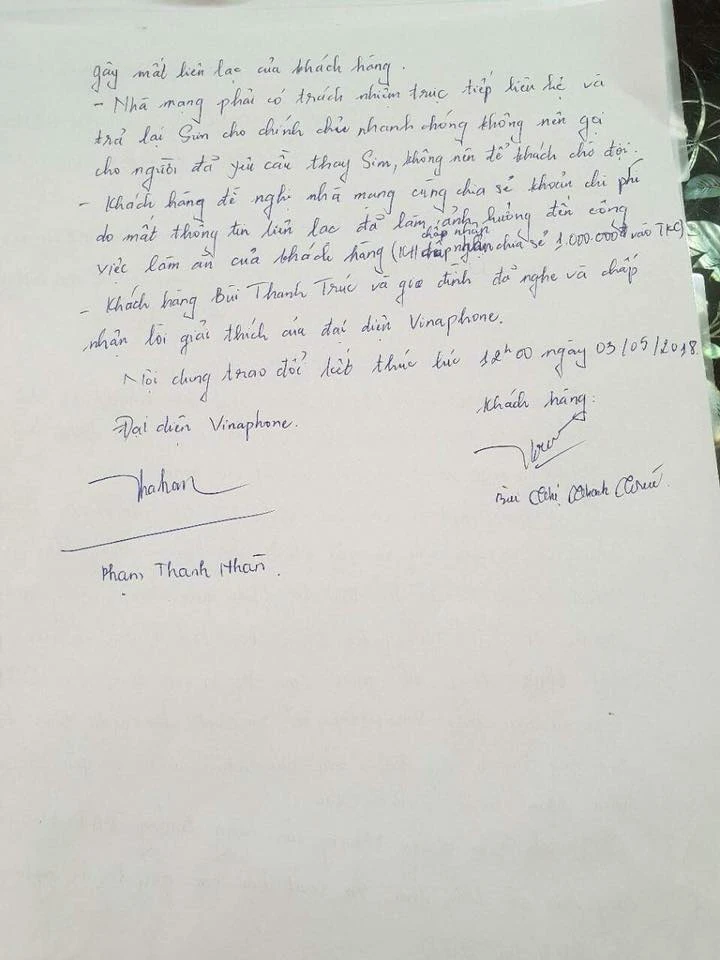 gây mất liên lạc của khách hàng.
- Nhà mạng phải có trách nhiệm trực tiếp liên hệ và
trả lại Sim cho chính chủ nhanh chóng không nên gọi
cho người đã yêu cầu thay Sim, không nên để khách chờ đợi.
- Khách hàng đề nghị nhà mạng cùng chia sẻ khoản chi phí
do mất thông tin liên lạc đã làm ảnh hưởng đến công
chấp nhận
việc làm ăn của khách hàng (KH chia sẻ 1.000.000đ vào TKC)
- Khách hàng Bùi Thanh Trúc và gia đình đã nghe và chấp
nhận lời giải thích của đại diện Vinaphone.
Nội dung trao đổi kết thúc lúc 12h00 ngày 03/05/2018.
Đại diện Vinaphone.
Khách hàng:
Bùi Thị Thanh Trúc
Phạm Thanh Nhàn.